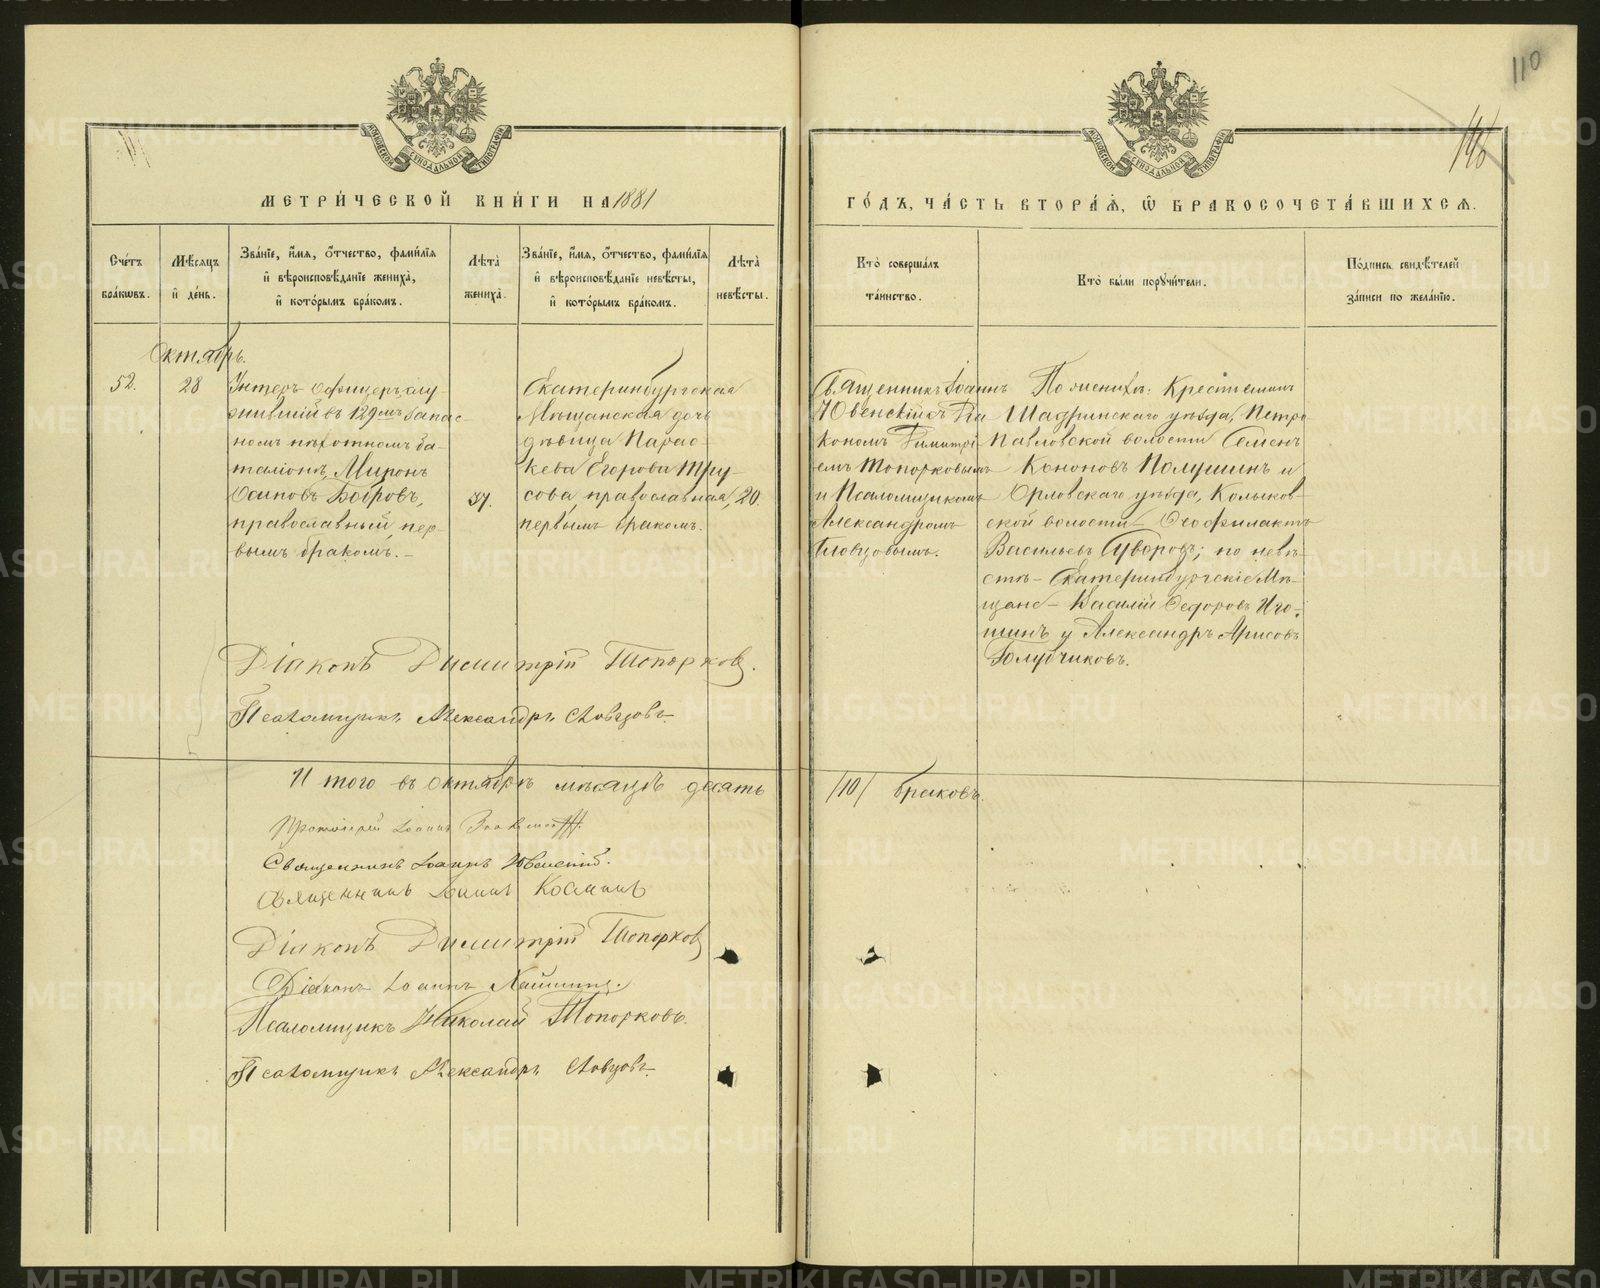 110
146
МЕТРИ́ЧЕСКОЙ КНИ́ГИ НА 1881
ГО́ДЪ, ЧА́СТЬ ВТОРА́Ѧ, Ѡ҆ БРАКОСОЧЕТА́ВШИХСѦ.
Сче́тъ бра́кѡвъ.
Мѣ́сѧцъ и҆ де́нь.
Зва́нїе, и҆́мѧ, ѻ҆́тчество, фами́лїѧ
и҆ вѣроисповѣ́данїе жениха̀,
и҆ кото́рымъ бра́комъ.
Лѣ́та жениха̀.
Зва́нїе, и҆́мѧ, ѻ҆́тчество, фами́лїѧ
и҆ вѣроисповѣ́данїе невѣ́сты,
и҆ кото́рымъ бра́комъ.
Лѣ́та невѣ́сты.
Кто̀ соверша́лъ
та́инство.
Кто̀ бы́ли порꙋчи́тели.
По́дпись свидѣ́телей
за́писи по жела́нїю.
Октябрь.
52.
28
Унтеръ-Офицеръ, слу-
жившій въ 129мъ запас-
номъ пѣхотномъ ба-
таліонѣ, Миронъ
Осиповъ Бобровъ,
православный, пер-
вымъ бракомъ. –
37.
Екатеринбургская
Мѣщанская дочь
дѣвица Парас-
кева Егорова Тру-
сова, православная,
первымъ бракомъ.
20.
Священникъ Іоаннъ
Ювенскій съ Діа
кономъ Димитрі-
емъ Топорковымъ
и Псаломщикомъ
Александромъ
Словцовымъ.
По женихѣ: Крестьянинъ
Шадринскаго уѣзда, Петро
Павловской волости Семенъ
Кононовъ Полушинъ и
Орловскаго уѣзда,
ской волости – Ѳеофилактъ
Васильевъ Суворовъ; по невѣ-
стѣ – Екатеринбургскіе Мѣ-
щане – Василій Ѳедоровъ Иго-
шинъ и Александръ Арисовъ
Голубчиковъ.
Діаконъ Димитрій Топорковъ.
Псаломщикъ Александръ Словцовъ.
И того въ октябрѣ мѣсяцѣ десять /10/ браковъ.
Протоіерей Іоаннъ
Священникъ Іоаннъ Ювенскій.
Священникъ
Діаконъ Димитрій Топорковъ
Діаконъ Іоаннъ
Псаломщикъ Николай Топорковъ.
Псаломщикъ Александръ Словцовъ.
METRIKI.GASO-URAL.RU